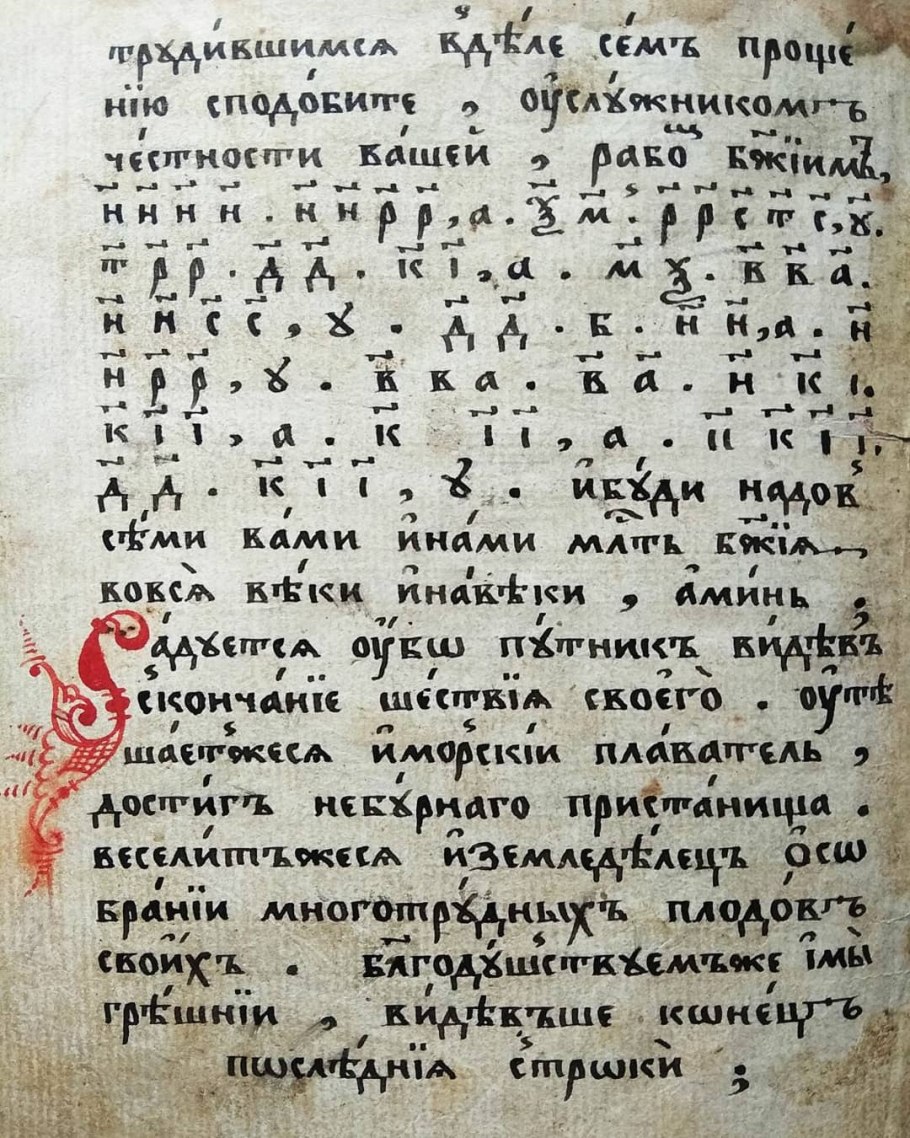 трꙋди́вшимсѧ в̾дѣ́ле се́мъ проще́
нїю сподо́бите , ᲂу҆слꙋжником̾ъ
че́стности ва́шей , рабо щ бж҃їимъ,
н҃ н҃ н҃ н҃ . н҃ н҃ р҃ р҃ , а . ѯ҃ м҃ . р҃ р҃ с҃ т҃ с҃ , ꙋ.
т҃ р҃ р҃ . д҃ д҃ . к҃ і҃ , а . м҃ ѯ . в҃ в҃ а҃ .
н҃ н҃ с҃ с҃ , ꙋ . д҃ д҃ . в . н҃ н҃ , а . н҃
н҃ р҃ р҃ , ꙋ . в҃ к а . в҃ а҃ . н҃ к҃ і҃ .
к҃ і҃ і҃ , а . к҃ і҃ і҃ , а . і҃і к҃ і҃ і҃ .
д҃ д҃ . к҃ і҃ і҃ , ꙋ . и҆бꙋ́ди надов̾
сѣ́ми ва́ми и҆на́ми млⷭ҇ть бж҃їѧ ,
вовсѧ̀ вѣ́ки и҆на́вѣки , а҆ми́нь ;
Ра́дꙋетсѧ ᲂу҆́бѡ пꙋ́тникъ ви́дѣвъ
с̾конча́нїе ше́ствїѧ своегѡ̀ . ᲂу҆тѣ
ша́етжесѧ и҆мор̾скі́и пла́ватель ,
дости́гъ небꙋ́рнаго приста́нища .
весели́тъжесѧ и҆земледѣ́лецъ ѻ҆сѡ
бра́нїи многотрꙋ́дныхъ плодо́въ
свои́хъ . бл҃годꙋ́шствꙋемъже і҆мы̀
грѣ́шнїи , ви́дѣвъше кѡне́цъ
пѡслѣ́днїѧ с̾трѡкѝ ;